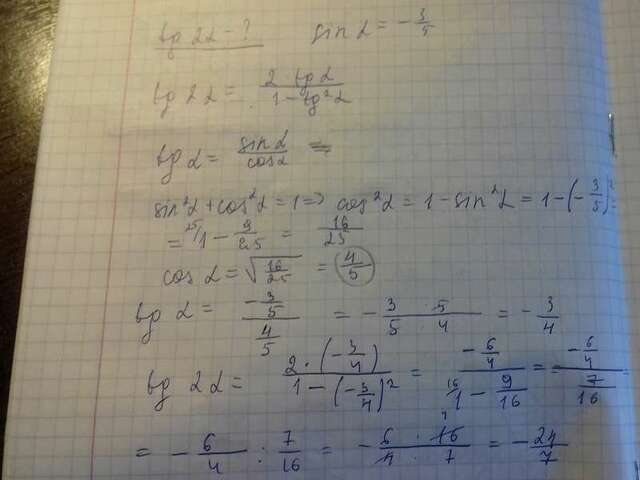 tg 2α - ? sin α = -3/5
tg 2α = (2 · tg α)/(1 - tg²α)
tg α = sin α/cos α =
sin²α + cos²α = 1 => cos²α = 1 - sin²α = 1 - (-3/5)² =
= ²⁵/1 - 9/25 = 16/25
cos α = √(16/25) = 4/5
tg α = (-3/5)/(4/5) = - (3 · 5)/(5 · 4) = - 3/4
tg 2α = (2 · (-3/4))/(1 - (-3/4)²) = (-6/4)/(¹⁶/1 - 9/16) = = (-6/4)/(7/16) =
= - 6/4 : 7/16 = - (6 · 16)/(4 · 7) = - 24/7